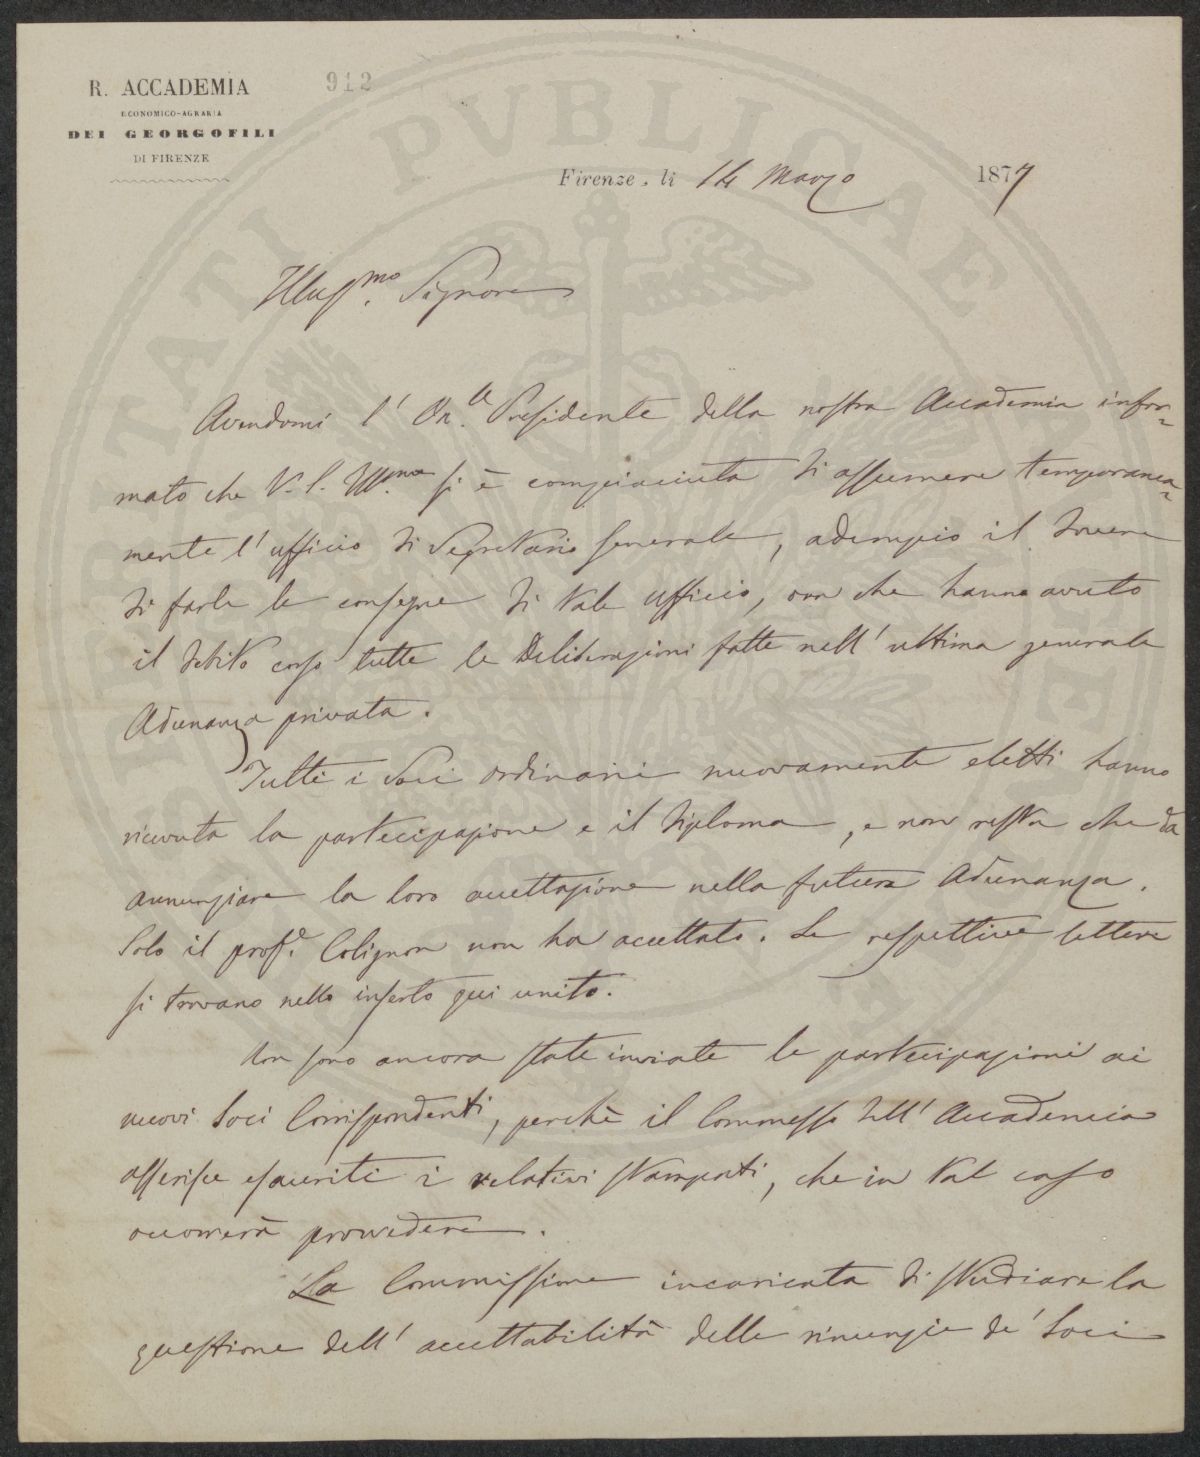 R. ACCADEMIA
ECONOMICO-AGRARIA
DEI GEORGOFILI
DI FIRENZE
912
Firenze, li 14 Marzo 1877
Illus.mo Signore
Avendomi l' On.le Presidente della nostra Accademia infor=
mato che V. S. Ill.ma si è compiaciuta di assumere temporanea=
mente l' ufficio di Segretario Generale, adempio il dovere
di farle le consegne di tale ufficio, ora che hanno avuto
il debito corso tutte le Deliberazioni fatte nell' ultima generale
Adunanza privata.
Tutti i Soci ordinarii nuovamente eletti hanno
ricevuta la partecipazione e il diploma, e non resta che da
annunziare la loro accettazione nella futura Adunanza.
Solo il prof.e Colignon non ha accettato. Le respettive lettere
si trovano nello inserto qui unito.
Non sono ancora state inviate le partecipazioni ai
nuovi Soci Corrispondenti, perchè il Commesso dell' Accademia
asserisce esauriti i relativi stampati, che in tal caso
occorrerà provvedere.
La Commissione incaricata di studiare la
questione dell' accettabilità delle rinunzie de' Soci
PVBLICAE